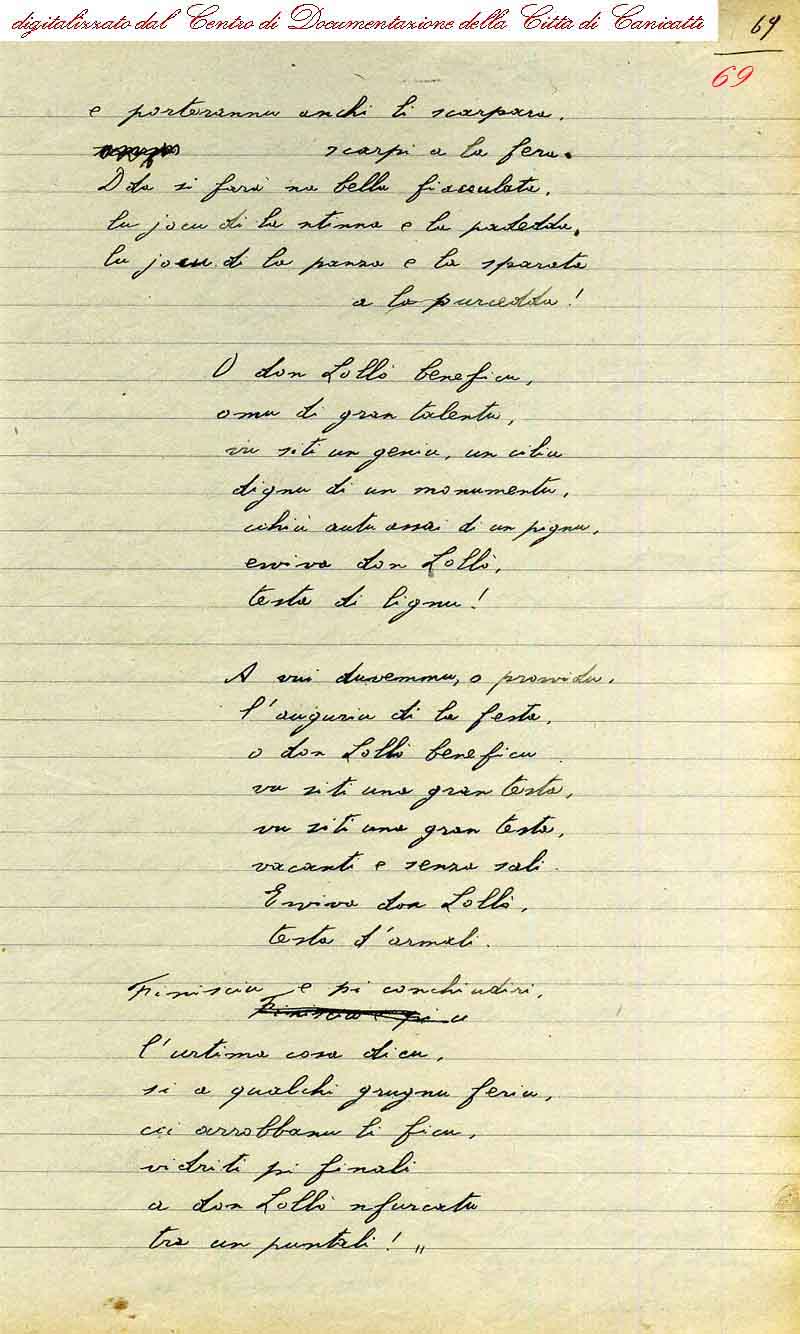 digitalizzato dal Centro di Documentazione della Città di Canicattì
69
69
e porterannu anchi li scarpara,
scarpi a la fera.
Dda si farà na bella fiacculata,
lu jocu di la ntinna e la padedda,
lu jocu di la panza e la sparata
a la purcedda!
O don Lollò beneficu,
omu di gran talentu,
vu siti un geniu, un ciliu
dignu di un monumentu,
cchiù autu assai di un pignu,
evviva don Lollò,
testa di lignu!
A vui duvemmu, o provvidu,
l'auguriu di la festa,
o don Lollò beneficu
vu siti una gran testa,
vu siti una gran testa,
vacanti e senza sali.
Evviva don Lollò,
testa d'armali.
Finisciu e pi conchiudiri,
Finisciu e pi c
l'urtima cosa dicu,
si a qualchi grugnu feriu,
cci arrobbanu li ficu,
vidriti pi finali
a don Lollò nfurcatu
tra un puntali! „